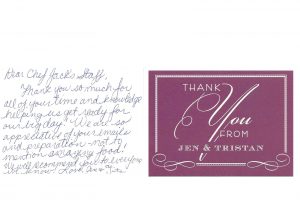 Dear Chef Jack's Staff,
Thank you so much for
all of your time and knowledge
helping us get ready for
our big day! We are so
appreciative of your emails
and preparation - not to
mention amazing food!
We will recommend you to everyone
we know! Love, Jen & Tris
THANK
You
FROM
JEN & TRISTAN